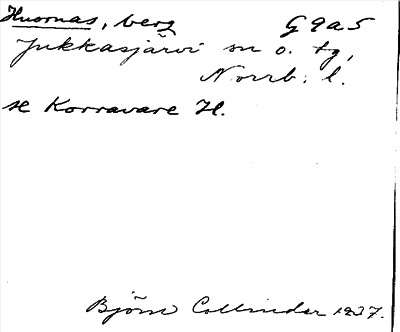 Huornas, berg G9a5
Jukkasjärvi sn o. tg,
Norrb. l.
se Korravare H.
Björn Collinder 1937.